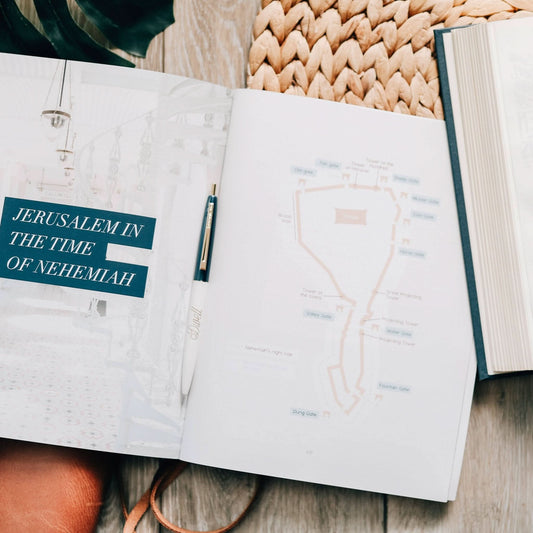 JERUSALEM IN
THE TIME
OF NEHEMIAH
dwell
Tower of the
Hundred
Fish gate
Old gate
Sheep Gate
East Gate
Horse Gate
Tower of
the Ovens
Great Projecting
Tower
Valley Gate
Projecting Tower
Water Gate
Projecting Tower
Nehemiah's night ride
Fountain Gate
Dung Gate